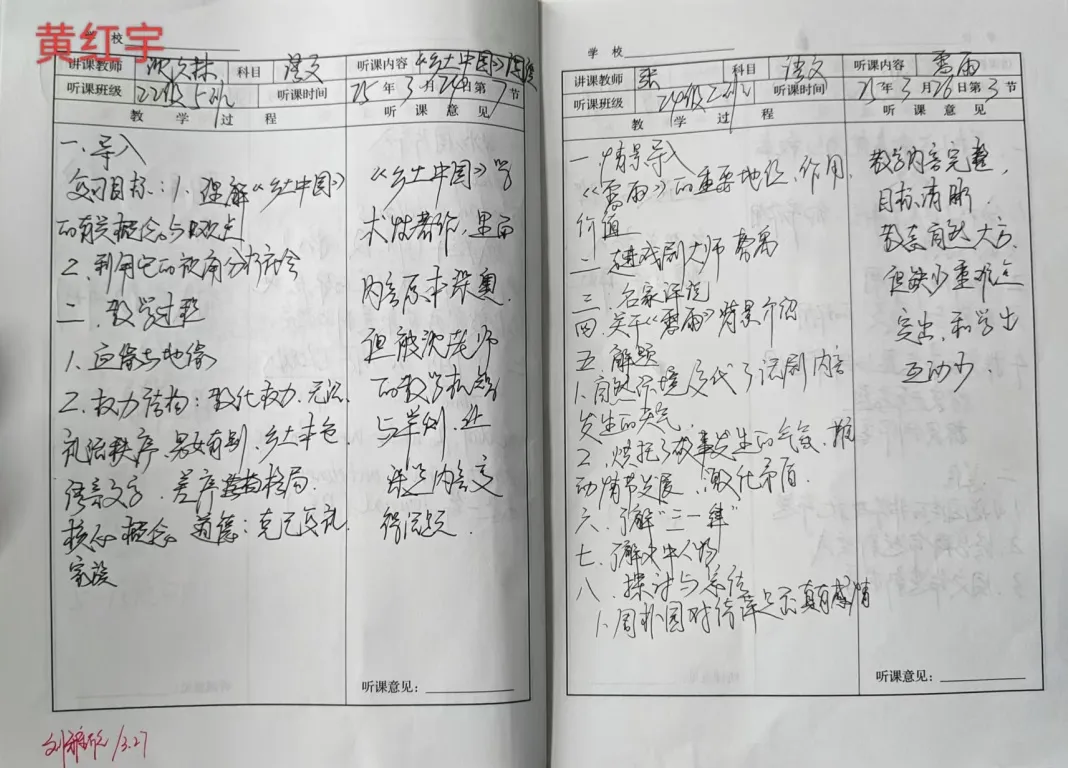 黄红宇
学 校
讲课教师 沈 林 科目 语文 听课内容 《乡土中国》
听课班级 22级5班 听课时间 25年3月24日第7节
教 学 过 程 听 课 意 见
一.导入
复习目标:1.理解《乡土中国》
的有关概念与观点
2.利用它的视角分析社会
二.教学过程
1.血缘与地缘
2.权力结构:教化权力.无讼.
礼治秩序.男女有别.乡土本色
语言文字.差序格局.
核心概念 道德:克己复礼.
家族
《乡土中国》学
术性著作,里面
内容原本深奥,
但被沈老师
的教学机智
与举例,让
课堂内容变
得浅显.
听课意见:
刘 3.27
学 校
讲课教师 张 科目 语文 听课内容 雷雨
听课班级 24级2班 听课时间 25年3月26日第3节
教 学 过 程 听 课 意 见
一.情景导入
《雷雨》的重要地位、作用、
价值
二.走进戏剧大师 曹禺
三.名家评说
四.关于《雷雨》背景介绍
五.解题
1.自然环境交代了话剧内容
发生的天气.
2.烘托了故事发生的气氛,推
动情节发展,激化矛盾.
六.了解"三一律"
七.了解文中人物
八.探讨与总结
1.周朴园对侍萍是否真有感情
教学内容完整,
目标清晰.
教态自然大方.
但缺少重难点
突出,和学生
互动少.
听课意见: